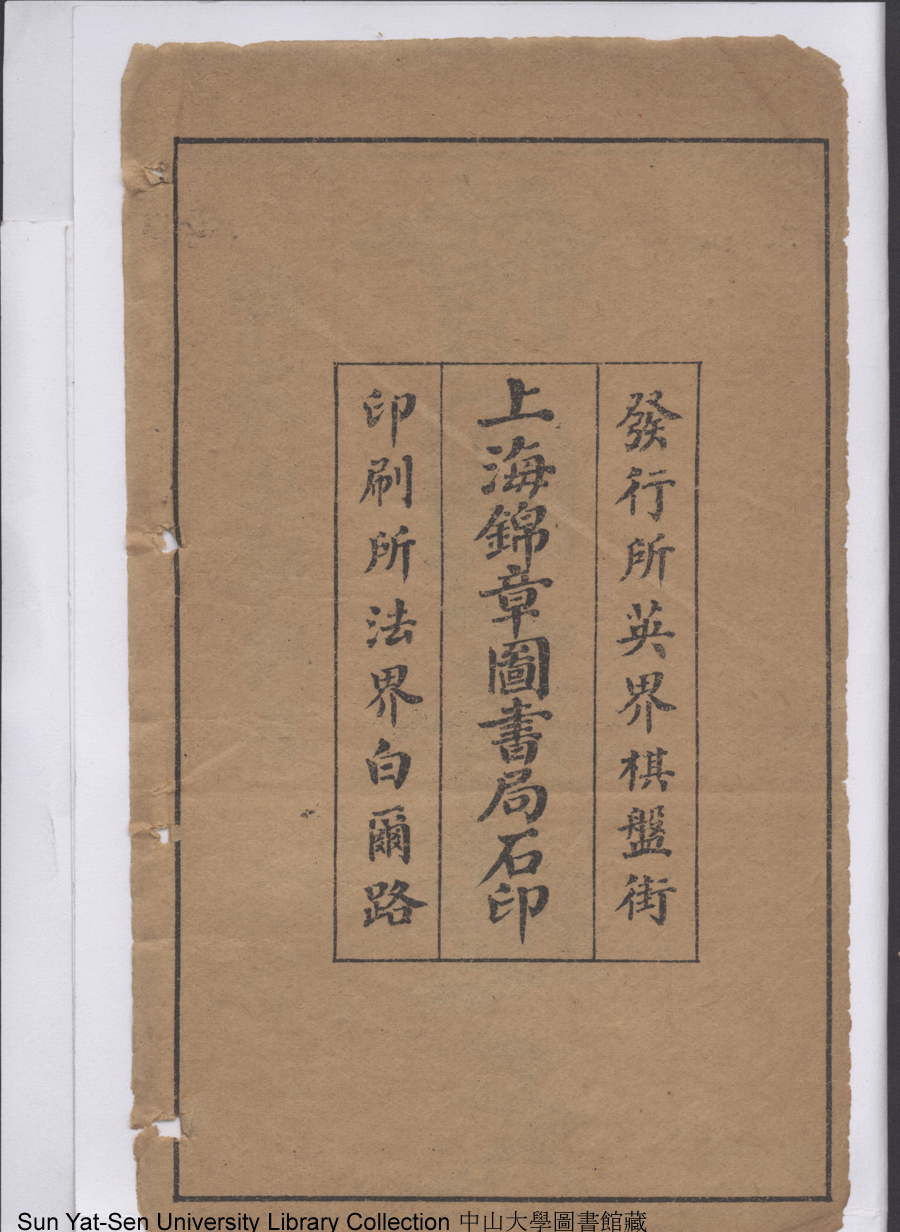 發行所英界棋盤街
上海錦章圖書局石印
印刷所法界白爾路
Sun Yat-Sen University Library Collection 中山大學圖書館藏